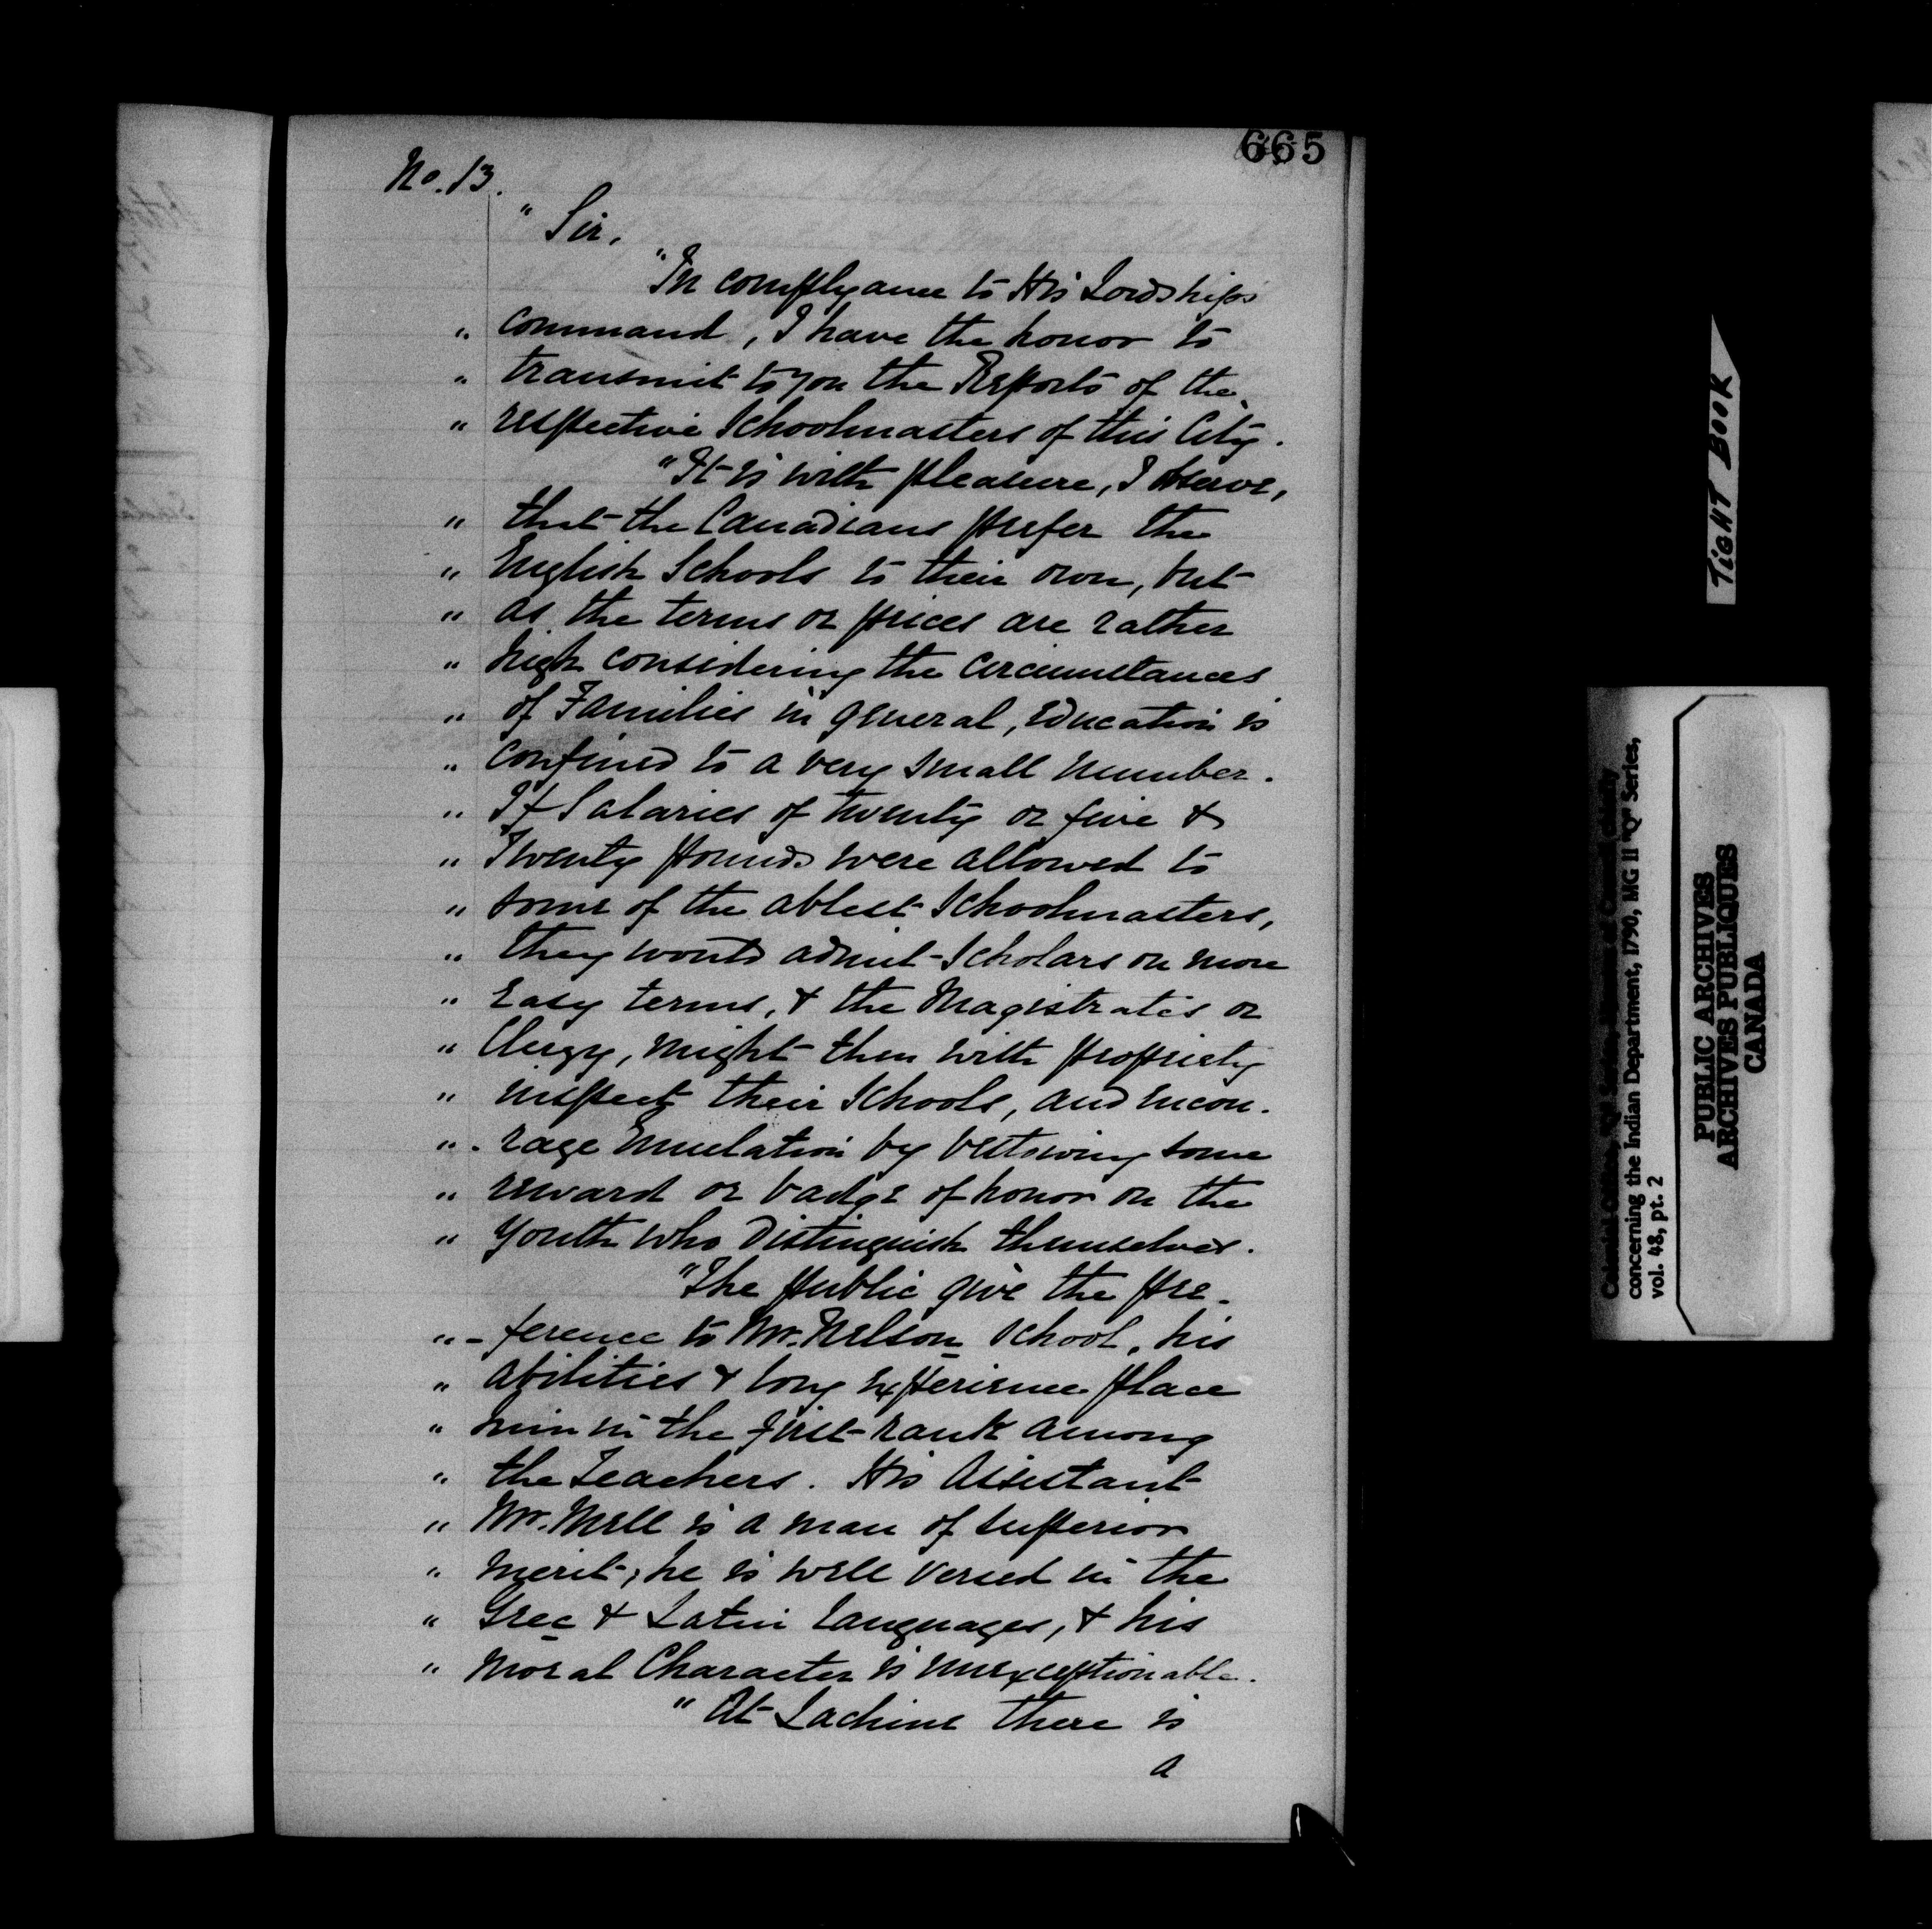 665
No. 13.
" Sir,
"In complyance to His Lordships
" command, I have the honor to
" transmit to you the Reports of the
" respective Schoolmasters of this City.
"It is with pleasure, I observe,
" that the Canadians prefer the
" English Schools to their own, but
" as the terms or prices are rather
" high considering the circumstances
" of Families in general, education is
" confined to a very small number.
" If Salaries of twenty or five &
" Twenty pounds were allowed to
" some of the ablest Schoolmasters,
" they would admit Scholars on more
" easy terms, & the Magistrates or
" Clergy, might then with propriety
" inspect their Schools, and encou-
" -rage Emulation by bestowing some
" reward or badge of honor on the
" Youth who distinguish themselves.
"The public give the pre-
" -ference to Mr. Nelson School, his
" abilities & long experience place
" him in the first rank among
" the Teachers. His Assistant
" Mr. Nell is a man of superior
" merit, he is well versed in the
" Grec & Latin languages, & his
" moral Character is unexceptionable.
" At Lachine there is
a
TIGHT BOOK
concerning the Indian Department, 1790, MG 11 "Q" Series,
vol. 48, pt. 2
PUBLIC ARCHIVES
ARCHIVES PUBLIQUES
CANADA